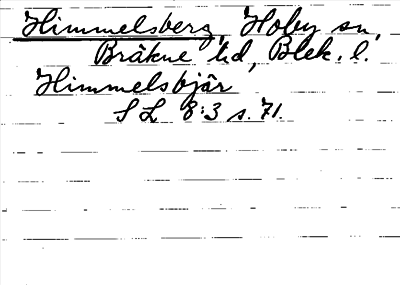 Himmelsberg, Hoby sn,
Bräkne hd, Blek. l.
Himmelsbjär
S L 8:3 s. 71.